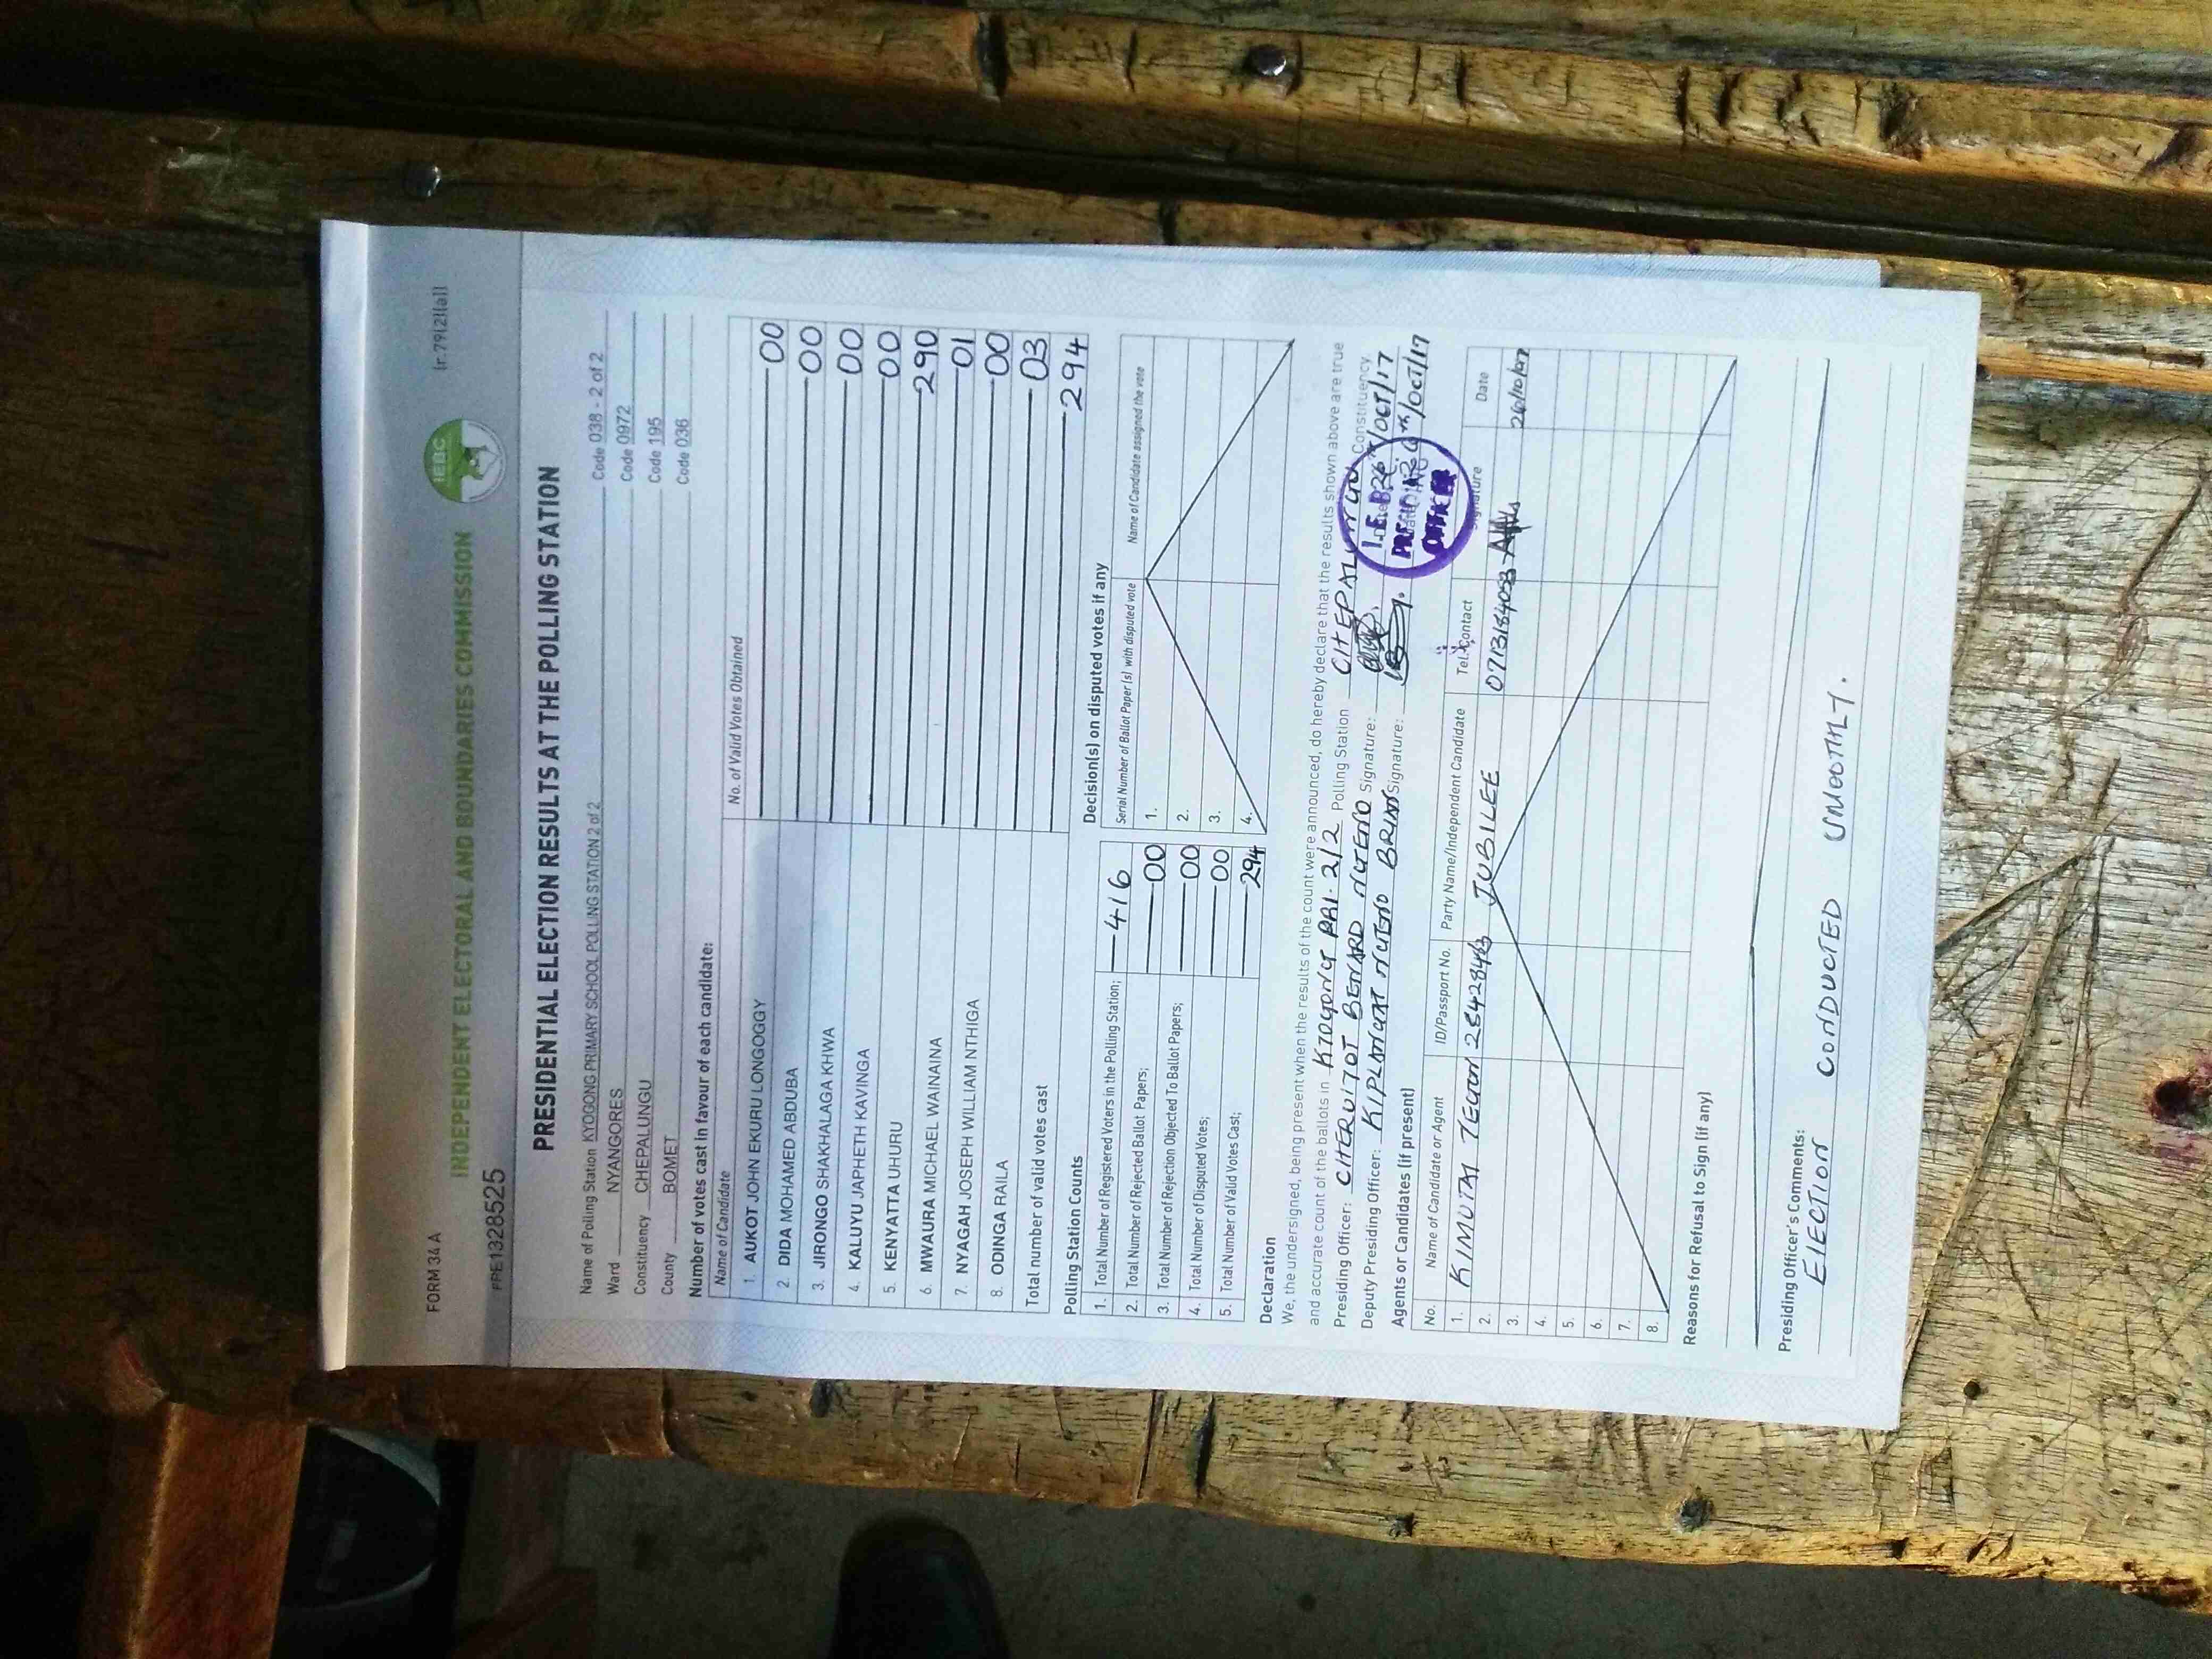 FORM 34 A (r.79(2)(a))
INDEPENDENT ELECTORAL AND BOUNDARIES COMMISSION
IEBC
PRE1328525
PRESIDENTIAL ELECTION RESULTS AT THE POLLING STATION
Name of Polling Station KYOGONG PRIMARY SCHOOL POLLING STATION 2 of 2 Code 038 - 2 of 2
Ward NYANGORES Code 0972
Constituency CHEPALUNGU Code 195
County BOMET Code 036
Number of votes cast in favour of each candidate:
Name of Candidate No. of Valid Votes Obtained
1. AUKOT JOHN EKURU LONGOGGY 00
2. DIDA MOHAMED ABDUBA 00
3. JIRONGO SHAKHALAGA KHWA 00
4. KALUYU JAPHETH KAVINGA 00
5. KENYATTA UHURU 290
6. MWAURA MICHAEL WAINAINA 01
7. NYAGAH JOSEPH WILLIAM NTHIGA 00
8. ODINGA RAILA 03
Total number of valid votes cast 294
Polling Station Counts
1. Total Number of Registered Voters in the Polling Station; 416
2. Total Number of Rejected Ballot Papers; 00
3. Total Number of Rejection Objected To Ballot Papers; 00
4. Total Number of Disputed Votes; 00
5. Total Number of Valid Votes Cast; 294
Decision(s) on disputed votes if any
Serial Number of Ballot Paper (s) with disputed vote Name of Candidate assigned the vote
1.
2.
3.
4.
Declaration
We, the undersigned, being present when the results of the count were announced, do hereby declare that the results shown above are true
and accurate count of the ballots in KYOGONG PRI. 2/2 Polling Station CHEPALUNGU Constituency
Presiding Officer: CHERUIYOT BENARD NGTENO Signature: 26th/OCT/17
Deputy Presiding Officer: KIPLANGAT NGTENO BRIAN Signature: 26th/OCT/17
I.E.B.C
PRESIDING
OFFICER
Agents or Candidates (if present)
No. Name of Candidate or Agent ID/Passport No. Party Name/Independent Candidate Tel. Contact Signature Date
1. KIMUTAI TEGON JUBILEE 0713184053 26/10/17
2.
3.
4.
5.
6.
7.
8.
Reasons for Refusal to Sign (if any)
Presiding Officer's Comments:
ELECTION CONDUCTED SMOOTHLY.